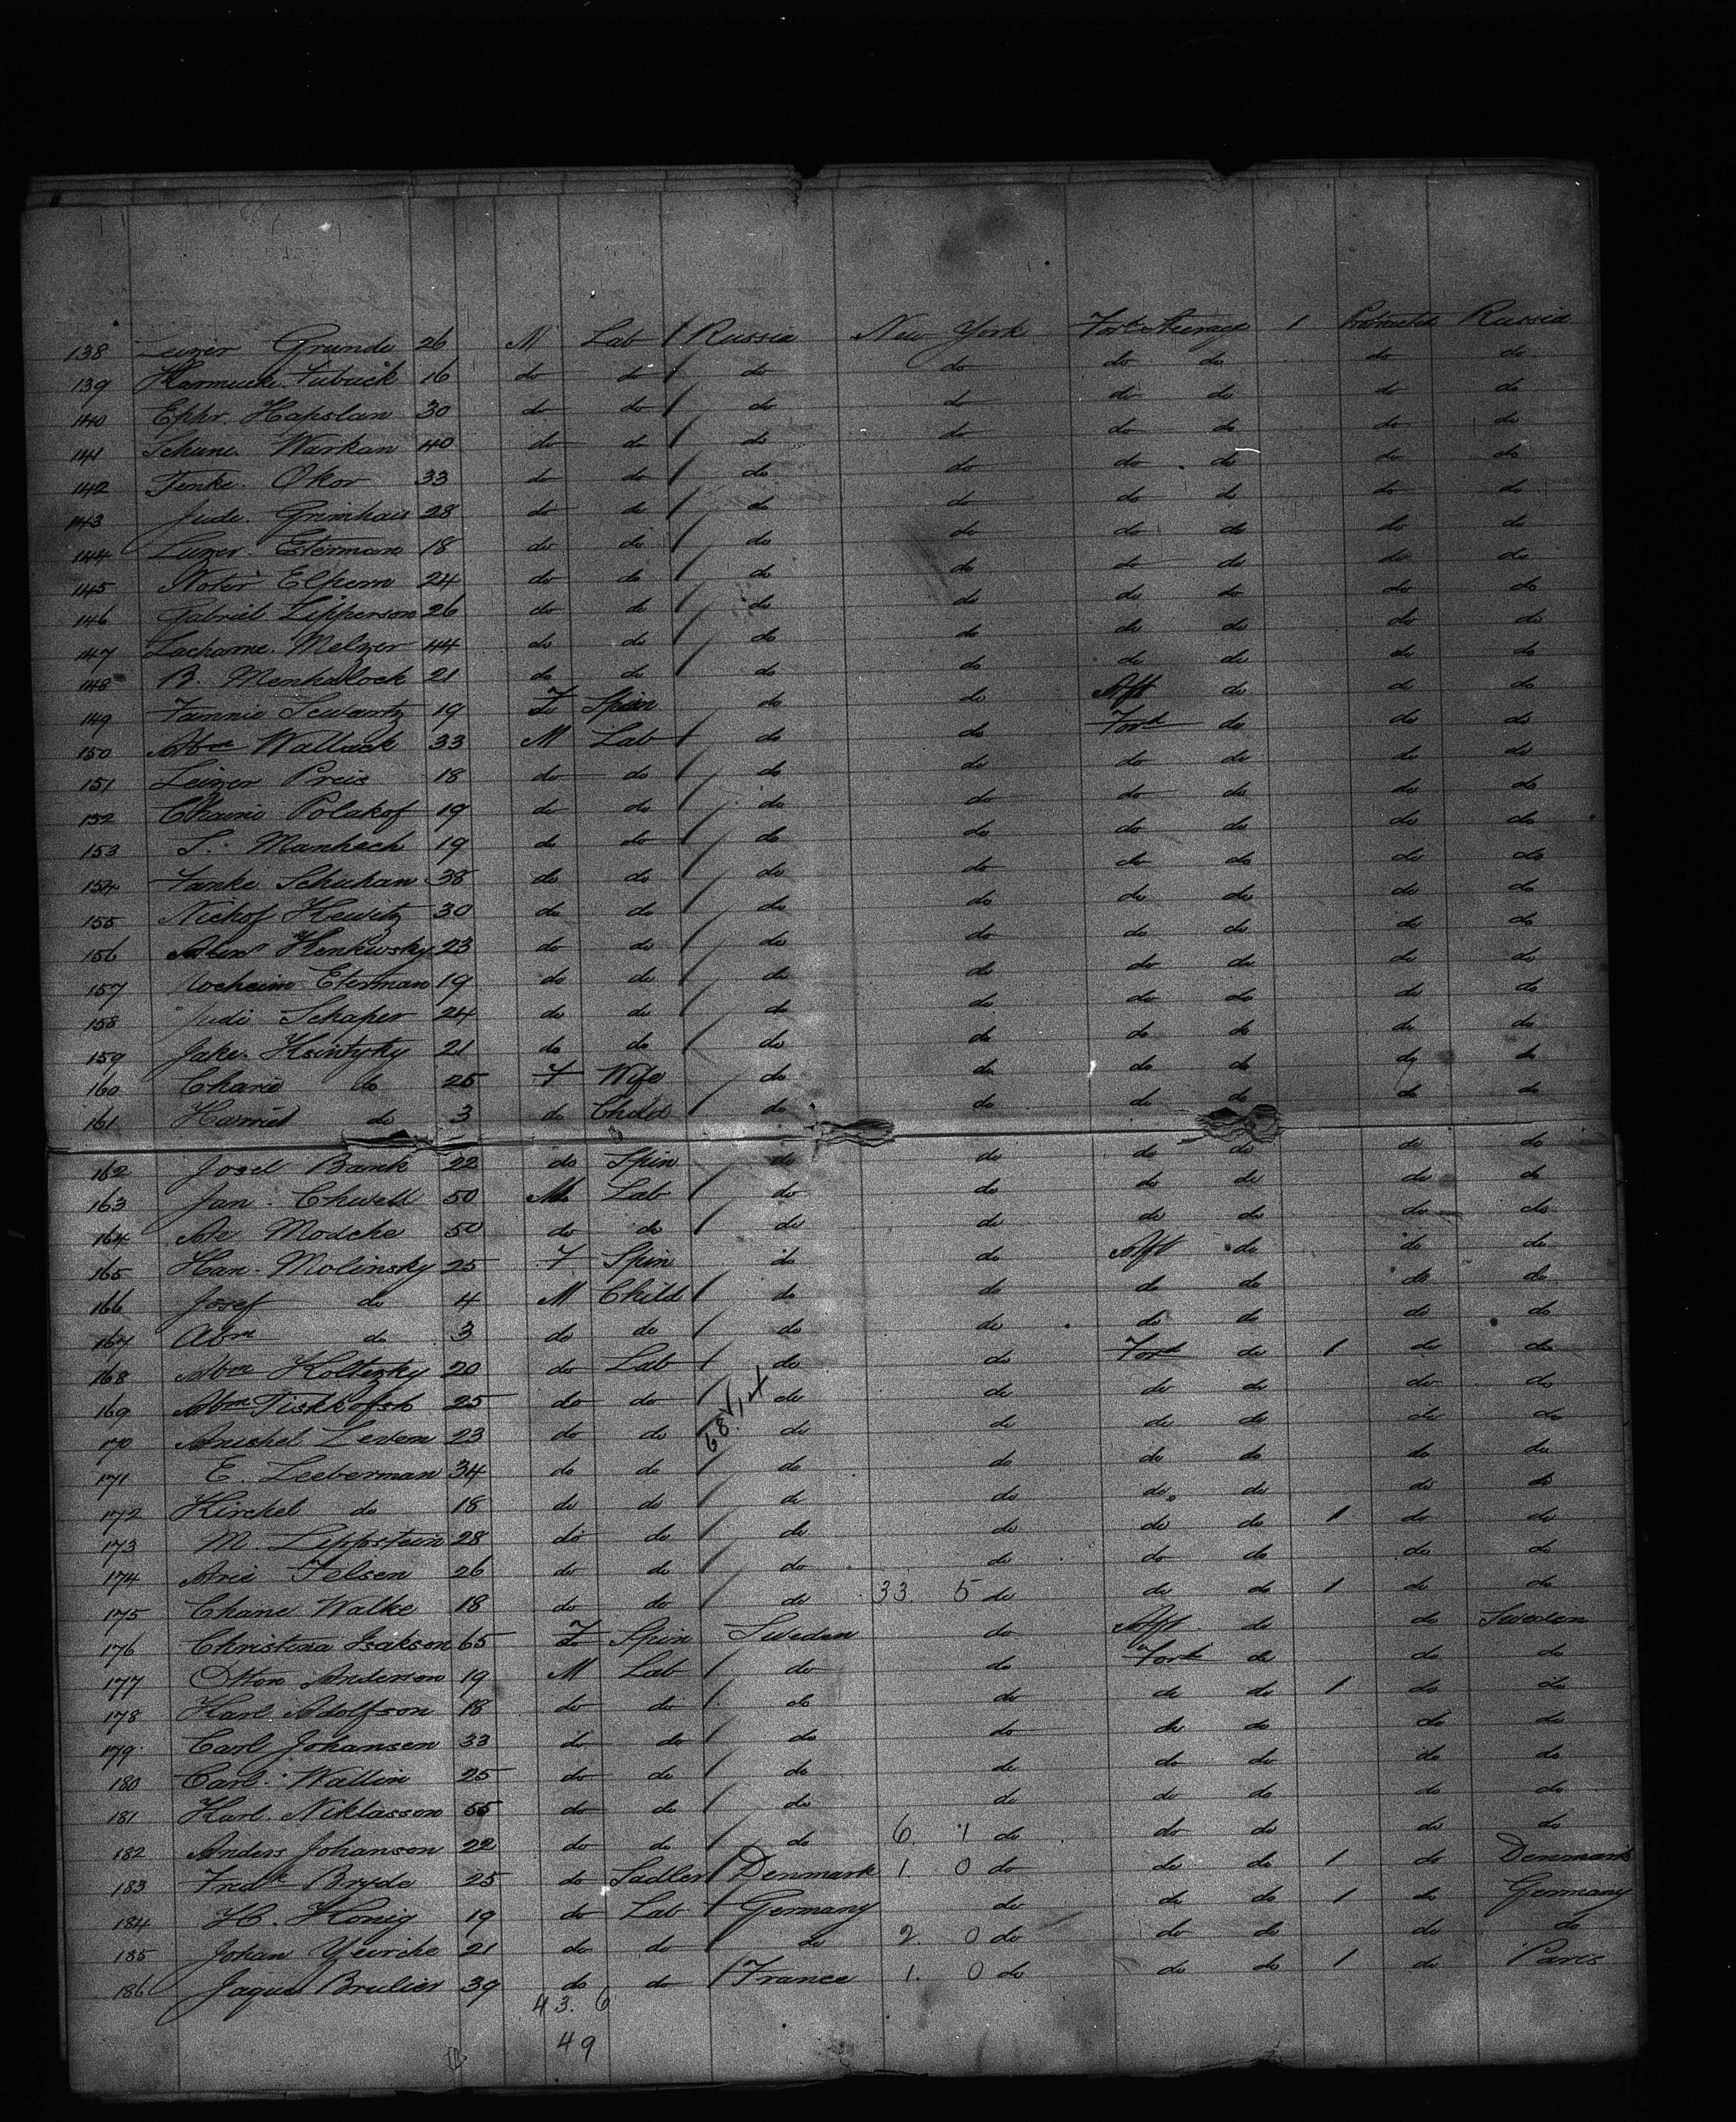 138 Leizer Grunde 26 M Lab / Russia New York For'd Steerage 1 Protracted Russia
139 Tubuck 16 do do / do do do do do do
140 Ephr. Hahslan 30 do do / do do do do do do
141 Schune Warkan 40 do do / do do do do do do
142 Tenke Okor 33 do do / do do do do do do
143 Jude. Grinhaus 28 do do / do do do do do do
144 Luzer. Eterman 18 do do / do do do do do do
145 Elpern 24 do do / do do do do do do
146 Gabriel Lipperson 26 do do / do do do do do do
147 Zacharne. Melzer 44 do do / do do do do do do
148 B. Menhalock 21 do do / do do do do do do
149 Fannie Scwartz 19 F Spin do do Aft do do do
150 Abm Wallack 33 M Lab / do do For'd do do do
151 Leizer Preis 18 do do / do do do do do do
152 Chaine Polakof 19 do do / do do do do do do
153 S. Manhech 19 do do / do do do do do do
154 Tanke Schuhan 38 do do / do do do do do do
155 Nickof Hewitz 30 do do / do do do do do do
156 Alexr Henkewsky 23 do do / do do do do do do
157 Nocheim Eterman 19 do do / do do do do do do
158 Judi Schaper 24 do do / do do do do do do
159 Jake. Hsintyky 21 do do / do do do do do do
160 Charie do 25 F Wife do do do do do do
161 Harriet do 3 do Child / do do do do do do
162 Josel Bank 22 do Spin do do do do do do
163 Jan. Chwell 50 M Lab / do do do do do do
164 Modche 50 do do / do do do do do do
165 Han. Molinsky 25 F Spin do do Aft do do do
166 Josef do 4 M Child / do do do do do do
167 Abm do 3 do do / do do do do do do
168 Abm Koltezky 20 do Lab / do do For'd do 1 do do
169 Abm Tiskkofsh 25 do do / do do do do do do
170 Anschel Levem 23 do do / 68. do do do do do do
171 E. Leeberman 34 do do / do do do do do do
172 Hirckel do 18 do do / do do do do do do
173 M. Lippstein 28 do do / do do do do 1 do do
174 Arie Felsen 26 do do / do do do do do do
175 Chane Walke 18 do do / do 33. 5 do do do 1 do do
176 Christina Isakson 65 F Spin Sweden do Aft do do Sweden
177 Otton Anderson 19 M Lab / do do For'd do do do
178 Karl Adolfson 18 do do / do do do do 1 do do
179 Carl Johansen 33 do do / do do do do do do
180 Carl. Wallin 25 do do / do do do do do do
181 Karl. Niklasson 55 do do / do do do do do do
182 Anders Johanson 22 do do / do 6. 1 do do do do do
183 Fredk Bryde 25 do Sadler / Denmark 1. 0 do do do 1 do Denmark
184 H. Konig 19 do Lab / Germany do do do 1 do Germany
185 Johan Yeirche 21 do do / do 2. 0 do do do do do
186 Jaques Brulier 39 do do / France 1. 0 do do do 1 do Paris
43. 6
49